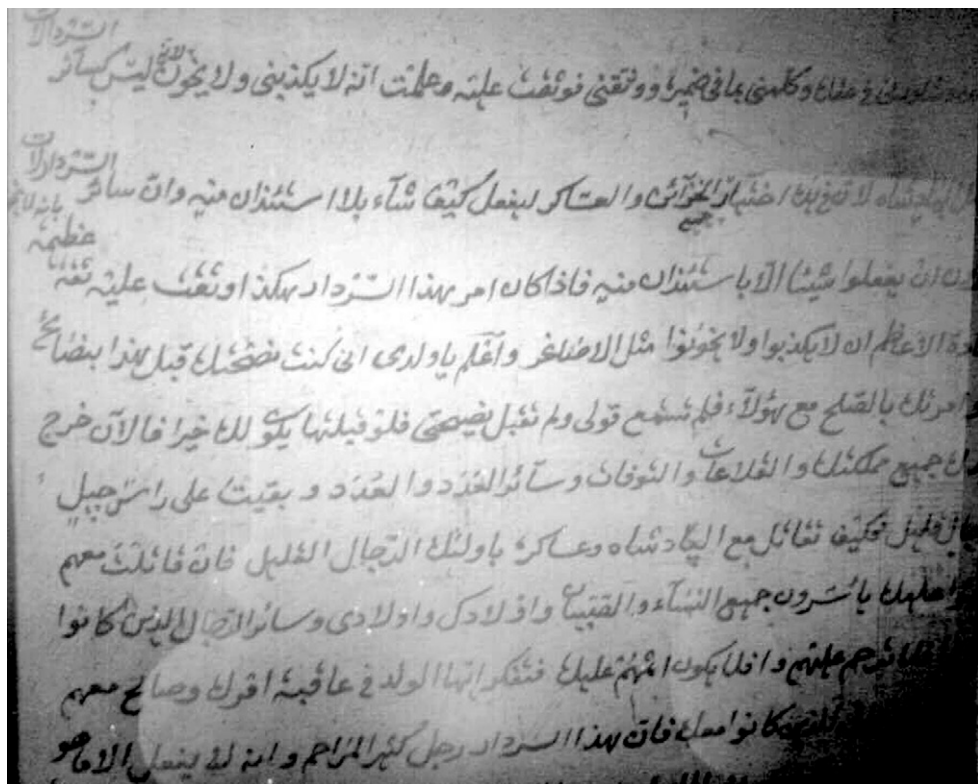 وكلمنى بما فى ضميره ووثقنى فوثقت عليه وعلمت انه لا يكذبنى ولا يخون لانه ليس كسائر
السردارات
پادشاه لان فى يده اختيار جميع الخزآئن والعساكر ليفعل كيف شآء بلا استئذان منه وان سائر
السردارات
ان يفعلوا شيئا الا باستئذان منه فاذا كان امر هذا السردار هكذا وثقت عليه ثقة
عظيمة
الاعاظم ان لا يكذبوا ولا يخونوا مثل الاصاغر واعلم يا ولدى انى كنت نصحتك قبل هذا بنصائح
امرتك بالصلح مع هؤلآء فلم تسمع قولى ولم تقبل نصيحتى فلو قبلتها يكون لك خيرا فالآن خرج
جميع مملكتك والقلاعات والتوفات وسآئر العدد وبقيت على راس جبل
قليل فكيف تقاتل مع الپادشاه وعساكره باولئك الرجال القليل فان قاتلت معهم
يأسرون جميع النسآء والصبيان واولادك واولادى وسائر الرجال الذين كانوا
عليهم وافلا يكون اثمهم عليك فتفكر ايها الولد فى عاقبة امرك وصالح معهم
كانوا معك فان هذا السردار رجل كثير المراحم وانه لا يفعل الا ما هو